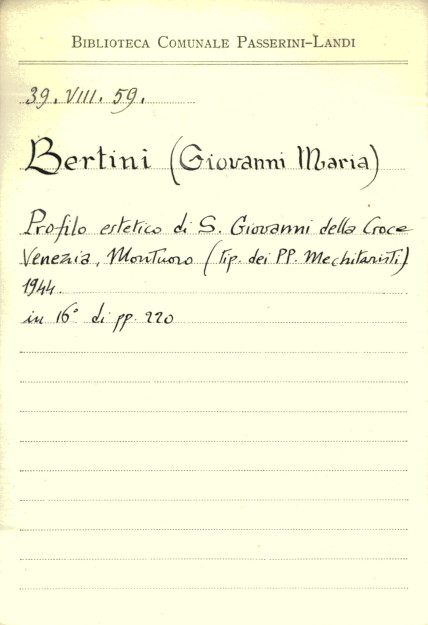 BIBLIOTECA COMUNALE PASSERINI-LANDI
39. VIII. 59.
Bertini (Giovanni Maria)
Profilo estetico di S. Giovanni della Croce
Venezia, Montuoro (tip. dei PP. Mechitaristi)
1944.
in 16° di pp. 220